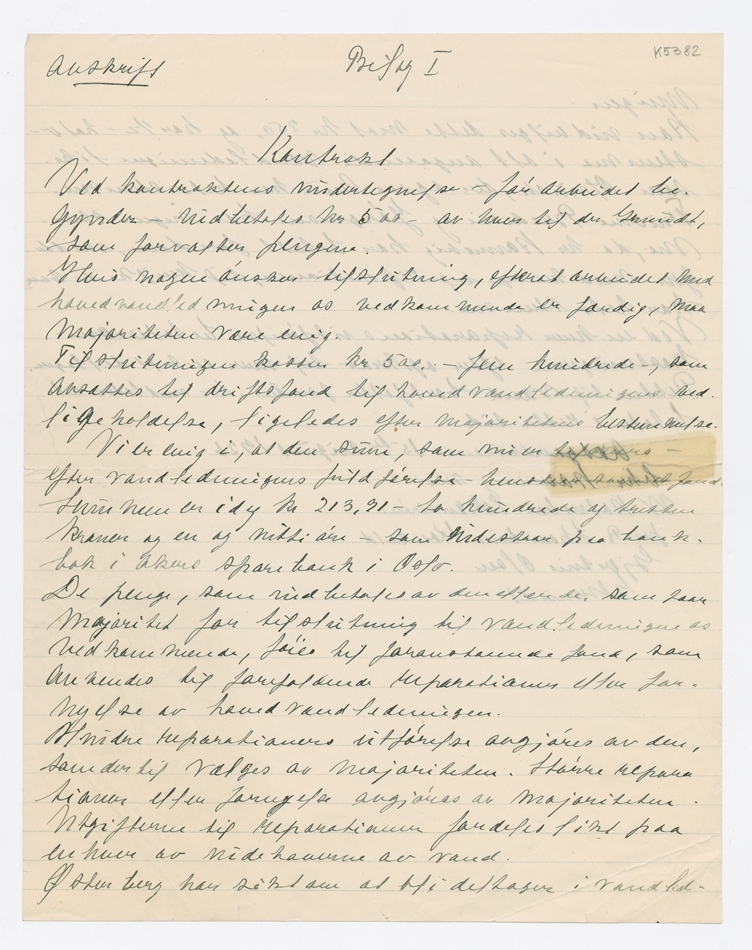 K5382
Avskrift Bilag I
Kontrakt
Ved kontraktens undertegnelse – før arbeidet be-
gynder – indbetales kr 500 – av hver til dr. Grundt,
som forvalter pengene.
Hvis nogen ønsker tilslutning, efterat arbeidet med
hovedvandledningen as vedkommende er færdig, maa
majoriteten være enig.
Tilslutningen koster kr 500. – fem hundrede –, som
avsættes til driftsfond til hovedvandledningens ved-
ligeholdelse, ligeledes efter majoritetens bestemmelse.
Vi er enig i, at den sum, som
efter vandledningens fuldførelse – fond.
Summen er idag kr 213,91 – to hundrede og tretten
kroner og en og nitti øre – som indestaar paa bank-
bok i Akers sparebank i Oslo.
De penge, som indbetales av den eller de, som faar
majoritet for tilslutning til vandledningen as
vedkommende, føies til foranstaaende fond, som
anvendes til forefaldende reparationer eller for-
nyelse av hovedvandledningen.
Mindre reparationers utførelse avgjøres av den,
som dertil vælges av majoriteten. Større repara
tioner eller fornyelse avgjøres av majoriteten.
Utgifterne til reparationer fordeles likt paa
enhver av indehaverne av vand.
Østerberg har søkt om at bli deltager i vandled-